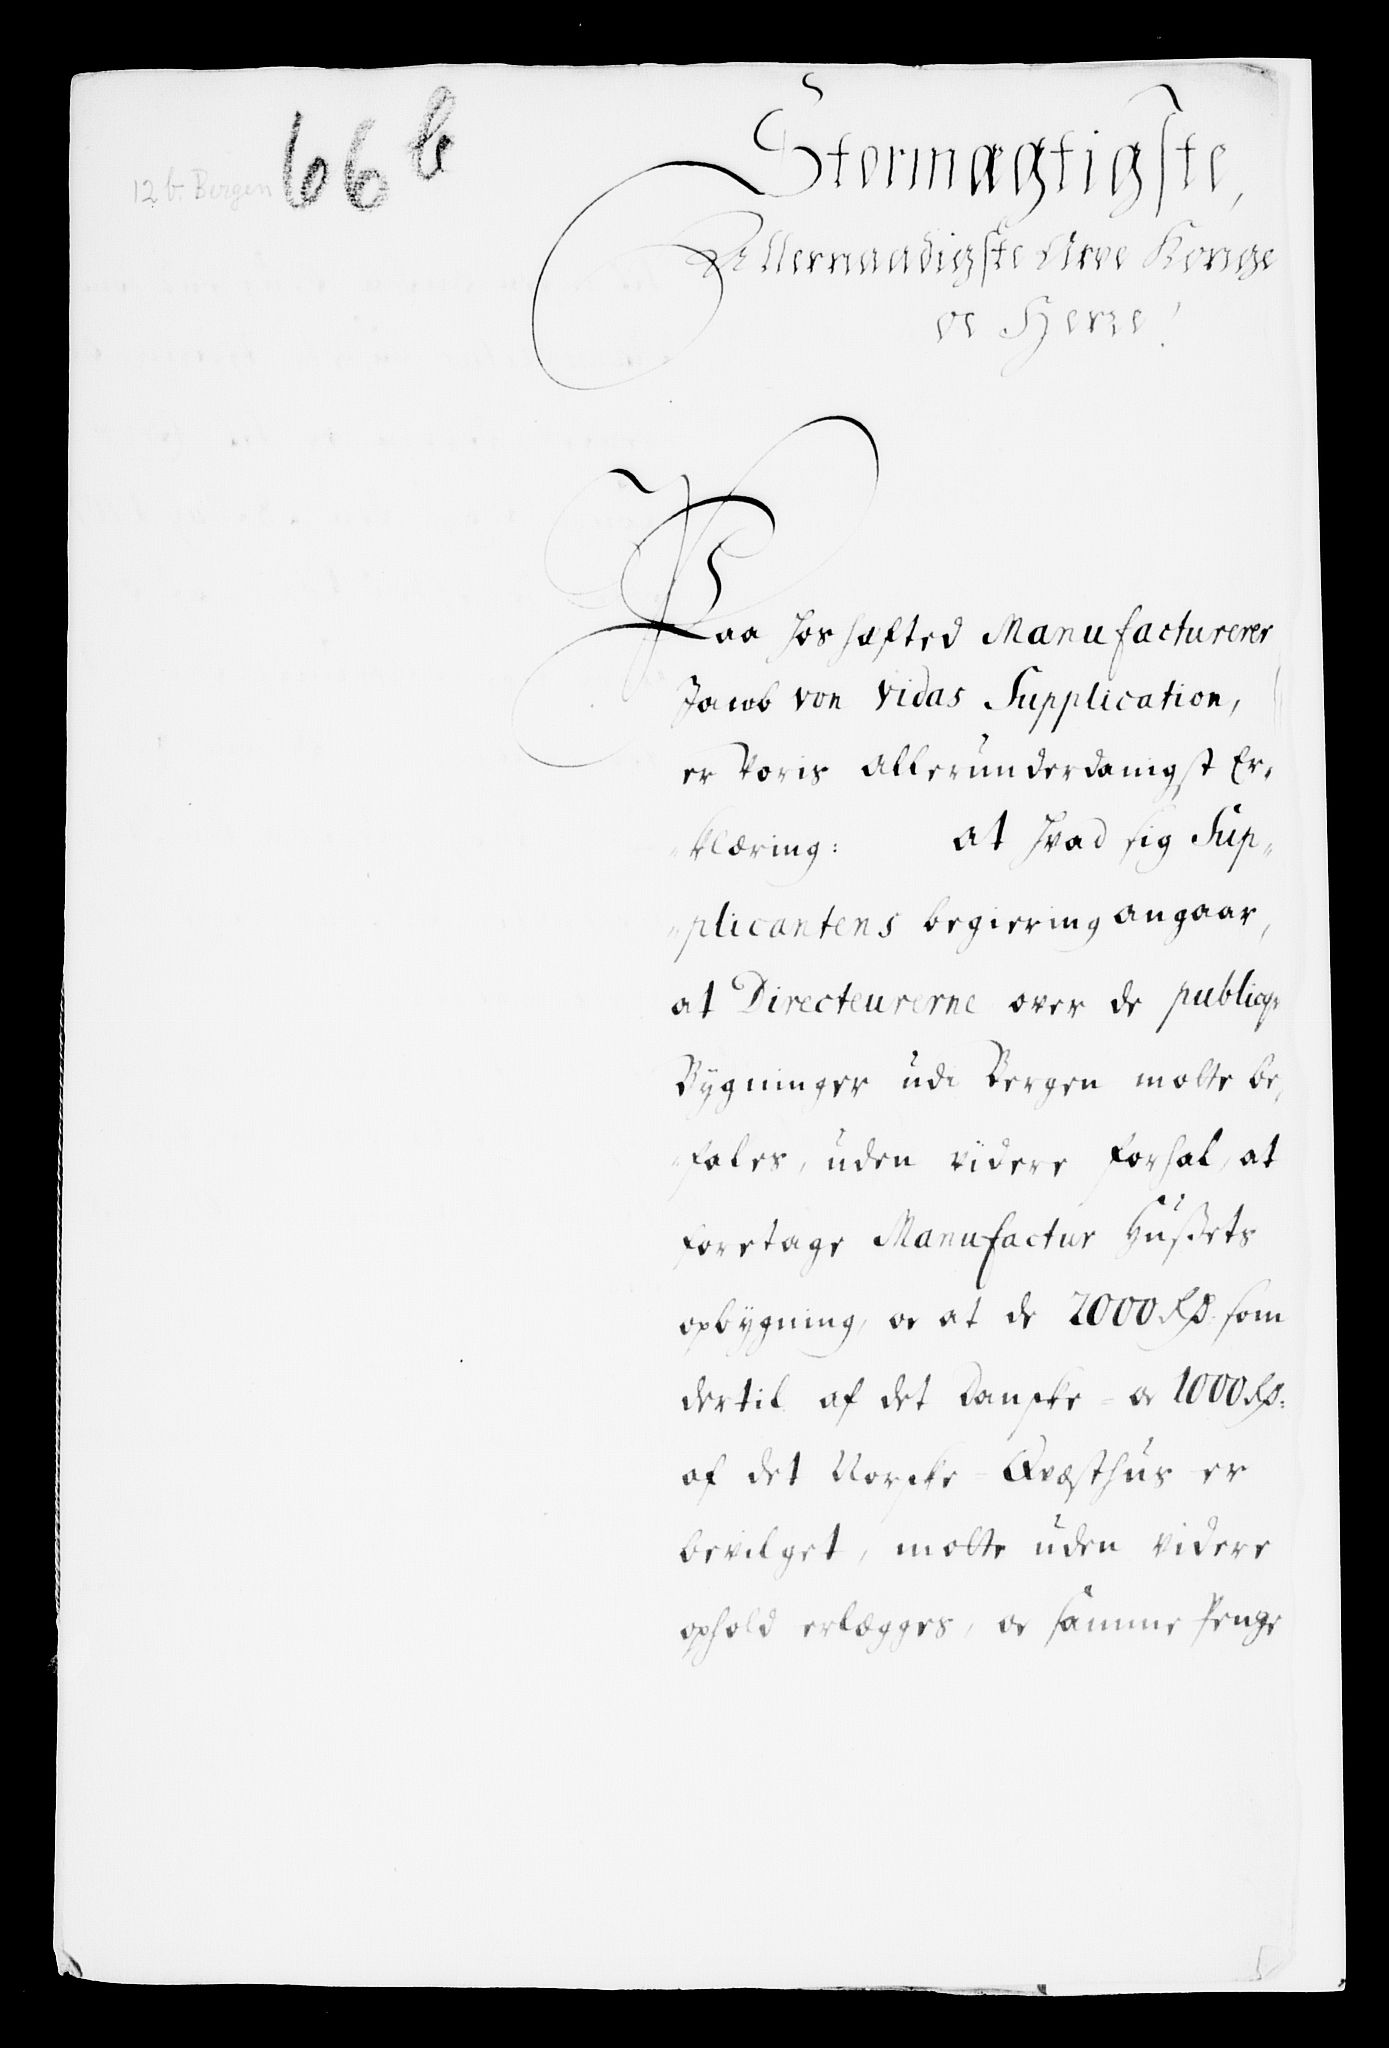 66 b
12 b. Bergen
Stormægtigste,
Allernaadigste Arve Konge
oc Herre!
Paa hoshæfted Manufacturerer
Jacob von Vidas Supplication,
er Voris allerunderdanigst Er„
„klæring: at hvad sig Sup„
„plicantens begiering angaar,
at Directeurerne over de publiqve
Bygninger udi Bergen motte be„
„fales, uden videre forhal, at
foretage Manufactur Hußets
opbygning, oc at de 2000 Rd. som
dertil af det Danske - oc 1000 Rd.
af det Norske - Qvæsthus er
bevilget, motte uden videre
ophold erlægges, oc samme Penge